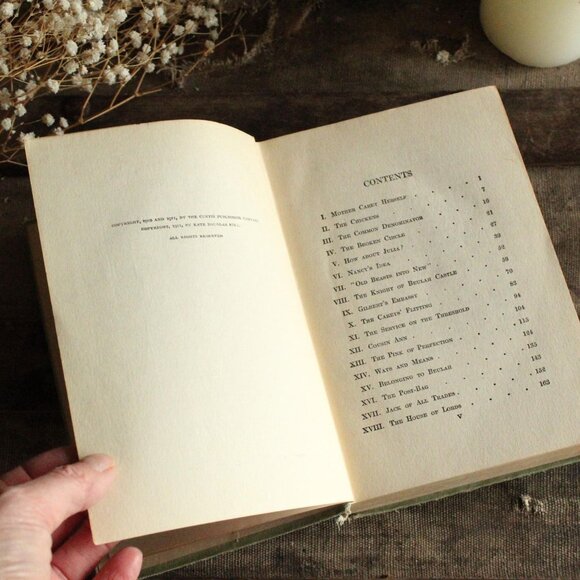 COPYRIGHT, 1910 AND 1911, BY THE CURTIS PUBLISHING COMPANY
COPYRIGHT, 1911, BY KATE DOUGLAS RIGGS
ALL RIGHTS RESERVED
CONTENTS
I. MOTHER CAREY HERSELF 1
II. THE CHICKENS 7
III. THE COMMON DENOMINATOR 19
IV. THE BROKEN CIRCLE 31
V. HOW ABOUT JULIA? 38
VI. NANCY'S IDEA 52
VII. "OLD BEASTS INTO NEW" 59
VIII. THE KNIGHT OF BEULAH CASTLE 70
IX. GILBERT'S EMBASSY 82
X. THE CAREYS' FLITTING 94
XI. THE SERVICE ON THE THRESHOLD 104
XII. COUSIN ANN 115
XIII. THE PINK OF PERFECTION 124
XIV. WAYS AND MEANS 135
XV. BELONGING TO BEULAH 143
XVI. THE POST-BAG 152
XVII. JACK OF ALL TRADES 163
XVIII. THE HOUSE OF LORDS
V